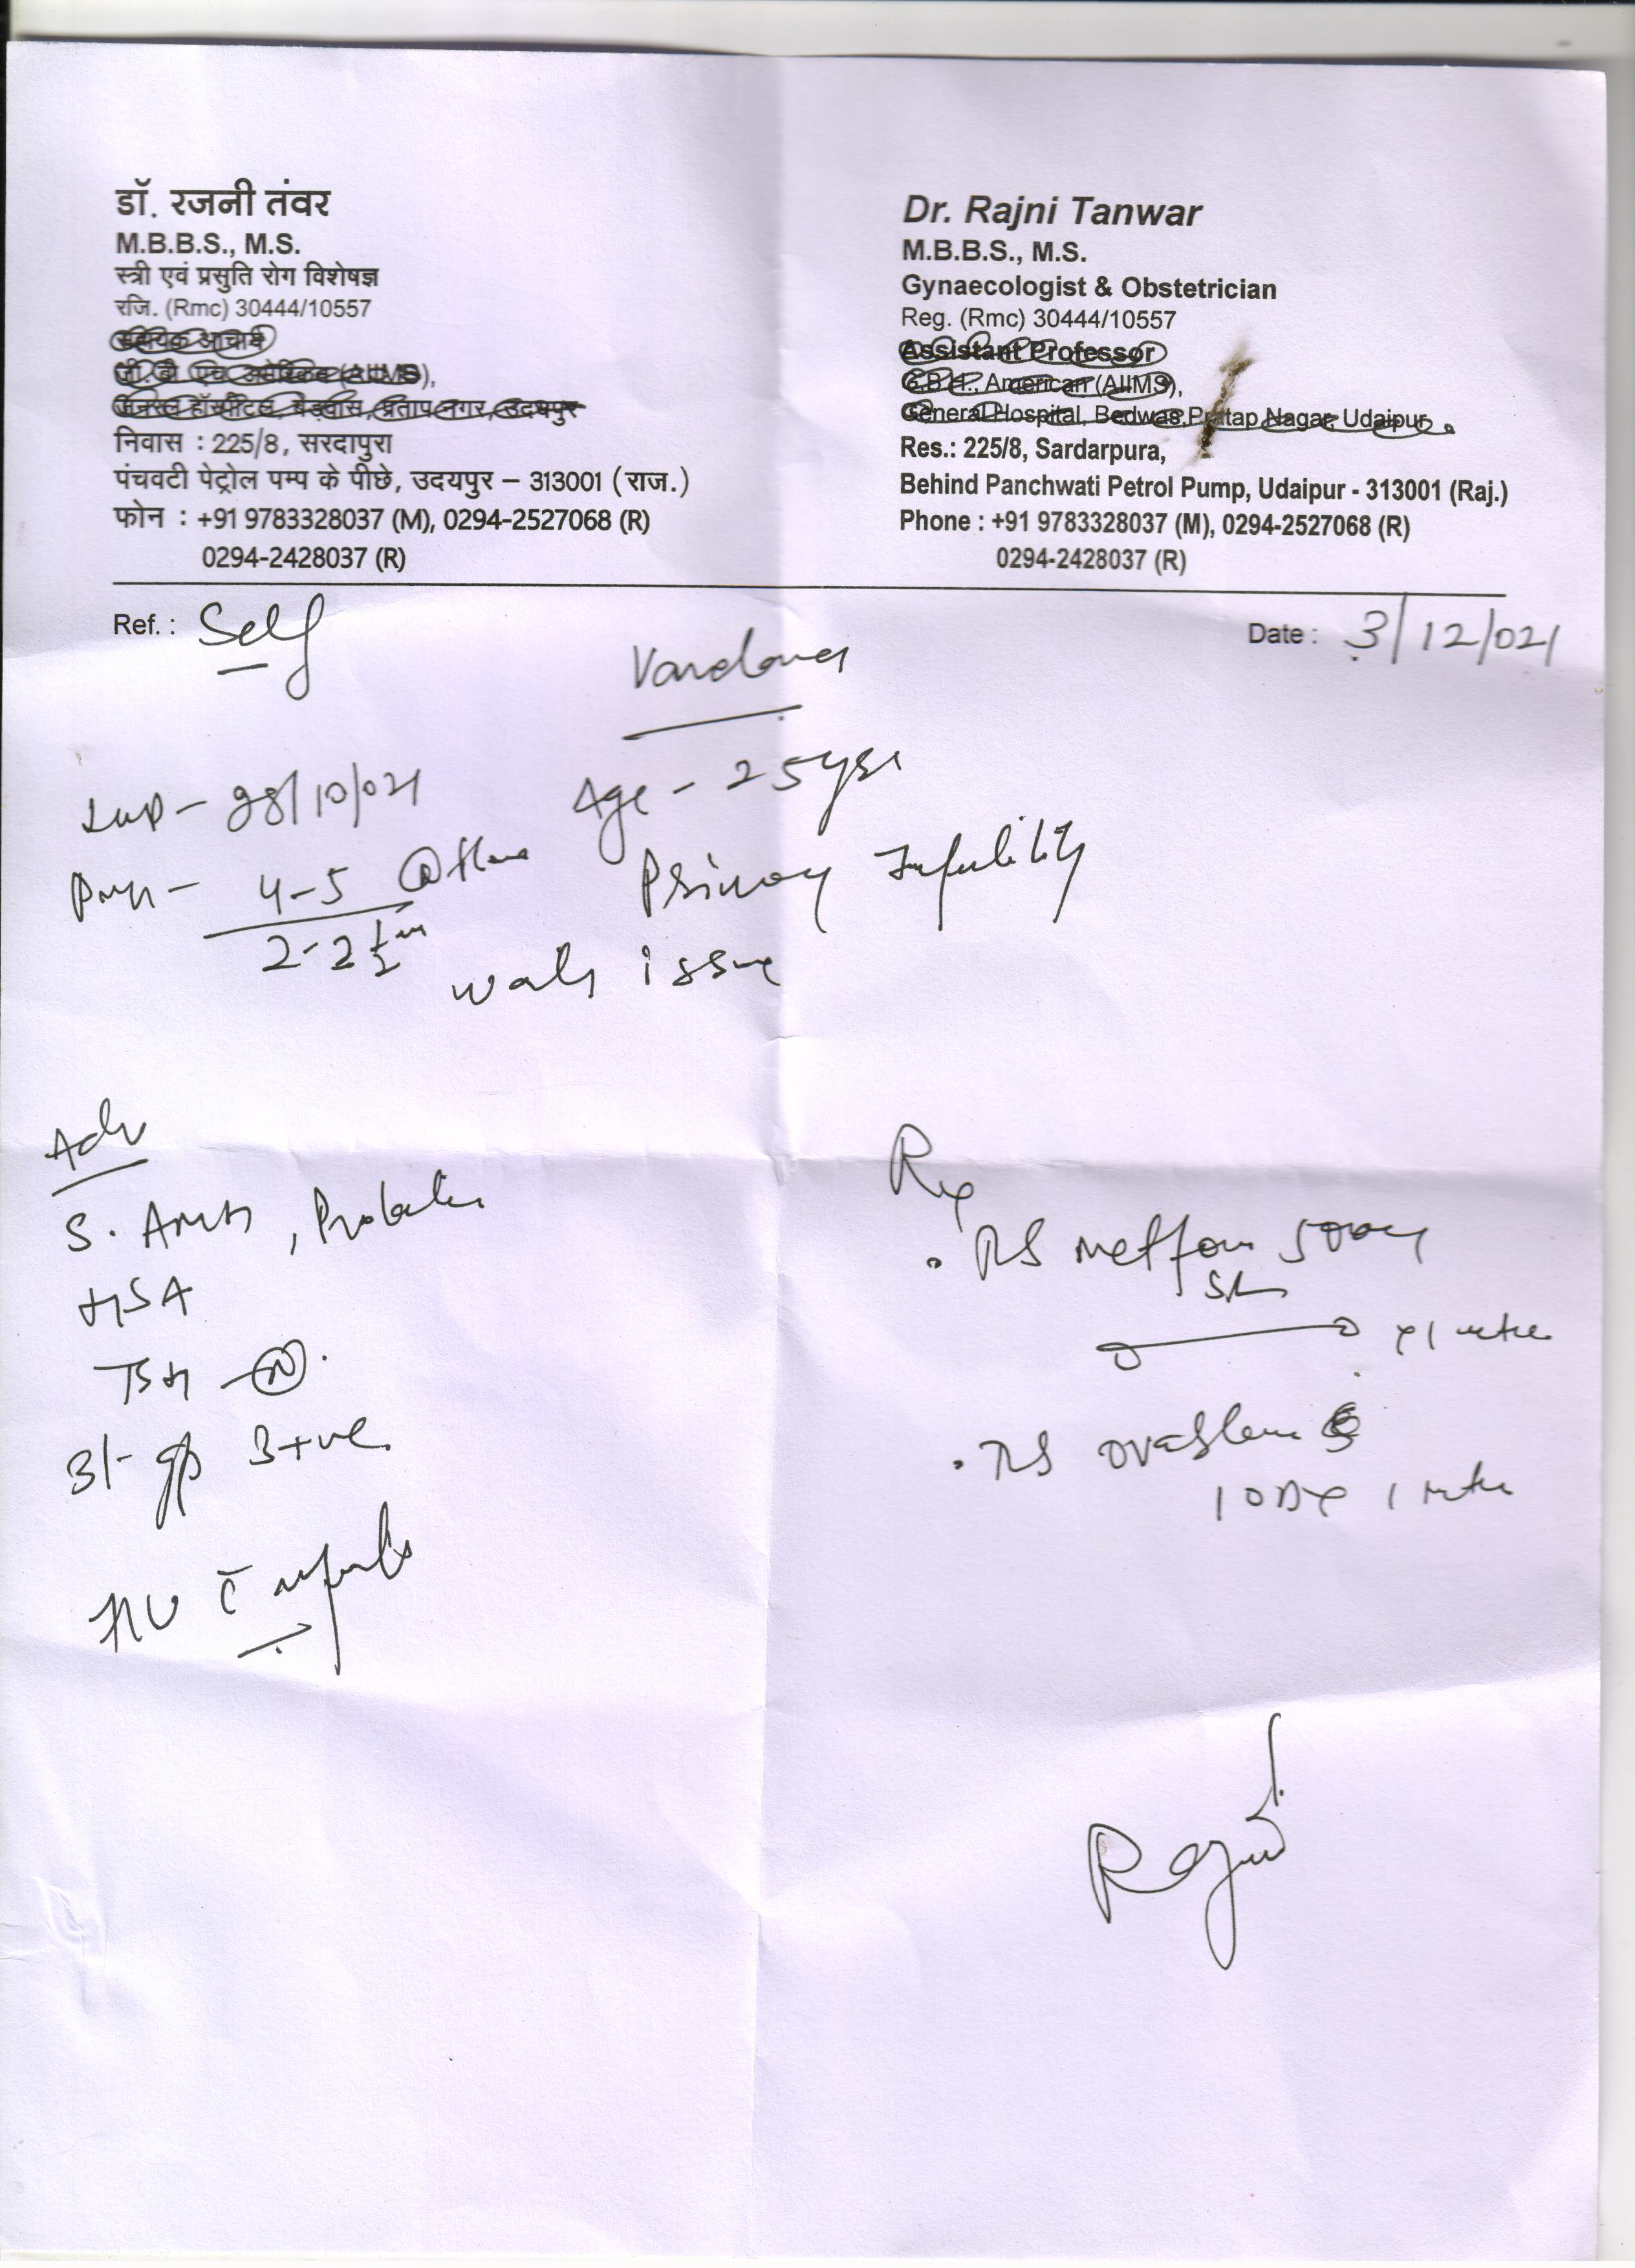 डॉ. रजनी तंवर
M.B.B.S., M.S.
स्त्री एवं प्रसुति रोग विशेषज्ञ
रजि. (Rmc) 30444/10557
सहायक आचार्य
जी.बी.एच. अमेरिकन (AIIMS),
जनरल हॉस्पीटल, बेड़वास, प्रताप नगर, उदयपुर
निवास : 225/8, सरदापुरा
पंचवटी पेट्रोल पम्प के पीछे, उदयपुर – 313001 (राज.)
फोन : +91 9783328037 (M), 0294-2527068 (R)
0294-2428037 (R)
Dr. Rajni Tanwar
M.B.B.S., M.S.
Gynaecologist & Obstetrician
Reg. (Rmc) 30444/10557
Assistant Professor
G.B.H., American (AIIMS),
General Hospital, Bedwas, Pratap Nagar, Udaipur
Res.: 225/8, Sardarpura,
Behind Panchwati Petrol Pump, Udaipur - 313001 (Raj.)
Phone : +91 9783328037 (M), 0294-2527068 (R)
0294-2428037 (R)
Ref. : Self
Date : 3/12/021
Vandana
Age - 25yrs
LMP - 28/10/021
PMH - 4-5 @ flow
2-2½m
Primary Infertility
wants issue
Adv
S. AMH, Prolactin
HSA
TSH - N
Bl- gp B+ve
RV c̄ reports
Rx
500mg
SR
x 1 mth
1 OD x 1 mth
Rajni